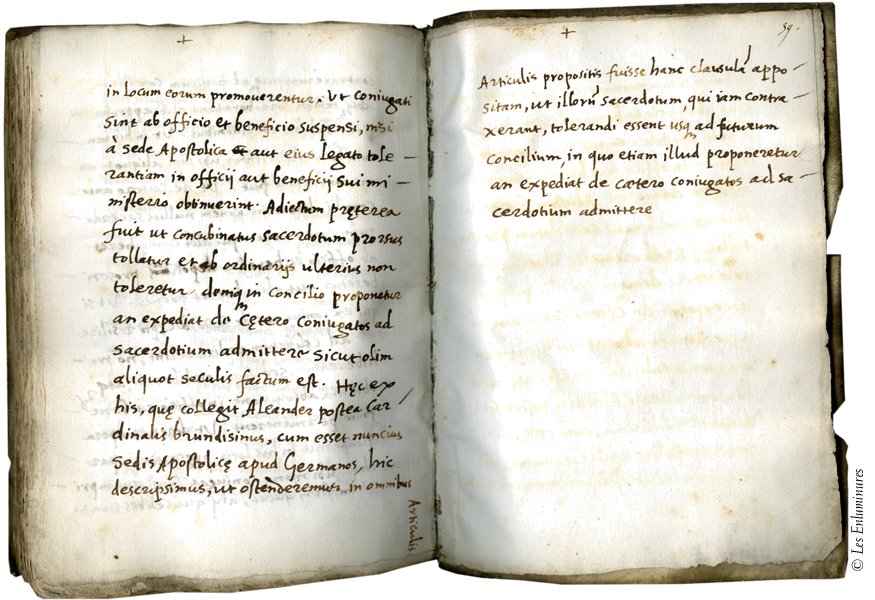 +
in locum eorum promouerentur. Ut coniugati
sint ab officio et beneficio suspensi, nisi
à sede Apostolica et aut eius legato tole –
rantiam in officij aut beneficij sui mi –
nisterio obtinuerint. Adiectum pręterea
fuit ut concubinatus sacerdotum prorsus
tollatur et ab ordinarijs ulterius non
toleretur. deniq in concilio proponatur
an expediat de cętero coniugatos ad
sacerdotium admittere sicut olim
aliquot seculis factum est. Hęc ex
his, quę collegit Aleander postea Car /
dinalis brundisinus, cum esset nuncius
Sedis Apostolicę apud Germanos, hic
descripsimus, ut ostenderemus, in omnibus
Articulis
+
59.
Articulis propositis fuisse hanc clausulā appo –
sitam, ut illorū sacerdotum, qui iam contra –
xerant, tolerandi essent usq ad futurum
concilium, in quo etiam illud proponeretur
an expediat de cætero coniugatos ad sa –
cerdotium admittere
© Les Enluminures